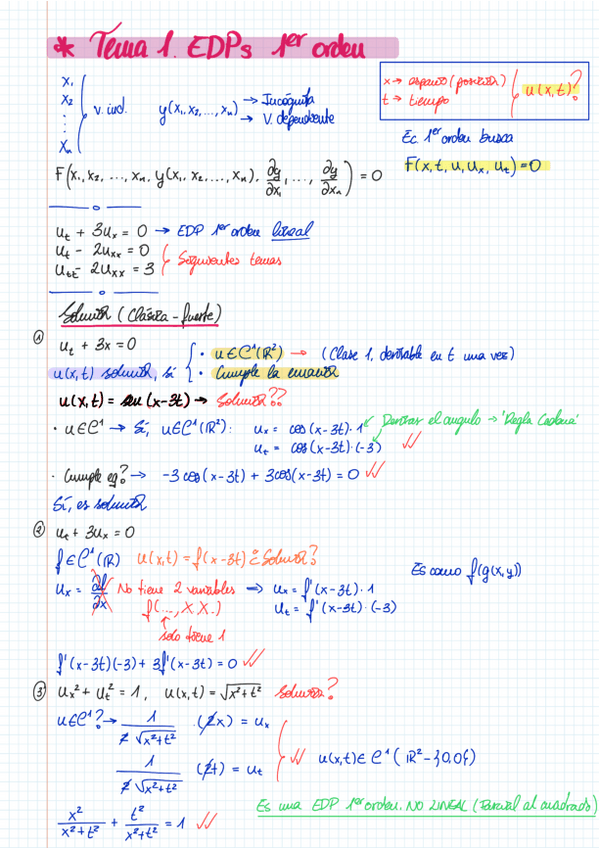 * Tema 1. EDPs 1er orden
x₁
x₂
⋮
xₙ
v. ind.
y(x₁, x₂, ..., xₙ) → Incógnita
→ V. dependiente
x → espacio (posición)
t → tiempo
u(x,t)?
Ec. 1er orden busca
F(x, t, u, uₓ, uₜ) = 0
F(x₁, x₂, ..., xₙ, y(x₁, x₂, ..., xₙ), ∂y/∂x₁, ..., ∂y/∂xₙ) = 0
uₜ + 3uₓ = 0 → EDP 1er orden lineal
uₜ - 2uₓₓ = 0
uₜₜ - 2uₓₓ = 3
Siguientes temas
Solución (Clásica - fuerte)
① uₜ + 3x = 0
u(x,t) solución, si
• u ∈ C¹(ℝ²) → (Clase 1, derivable en t una vez)
• Cumple la ecuación
u(x,t) = sen (x-3t) → Solución??
· u ∈ C¹ → Sí, u ∈ C¹(ℝ²): uₓ = cos(x-3t)·1
Derivar el angulo → 'Regla Cadena'
uₜ = cos(x-3t)·(-3) ✓✓
· Cumple eq? → -3cos(x-3t) + 3cos(x-3t) = 0 ✓✓
Sí, es solución
② uₜ + 3uₓ = 0
f ∈ C¹(ℝ) u(x,t) = f(x-3t) ¿Solución?
Es como f(g(x,y))
uₓ = ∂f/∂x No tiene 2 variables → uₓ = f'(x-3t)·1
f(..., X X.) uₜ = f'(x-3t)·(-3)
solo tiene 1
f'(x-3t)(-3) + 3f'(x-3t) = 0 ✓✓
③ uₓ² + uₜ² = 1, u(x,t) = √x²+t² Solución?
u ∈ C¹? → 1/2√x²+t² · (2x) = uₓ
1/2√x²+t² (2t) = uₜ
✓✓ u(x,t) ∈ C¹(ℝ²-{0,0})
Es una EDP 1er orden. NO LINEAL (Parcial al cuadrado)
x²/x²+t² + t²/x²+t² = 1 ✓✓